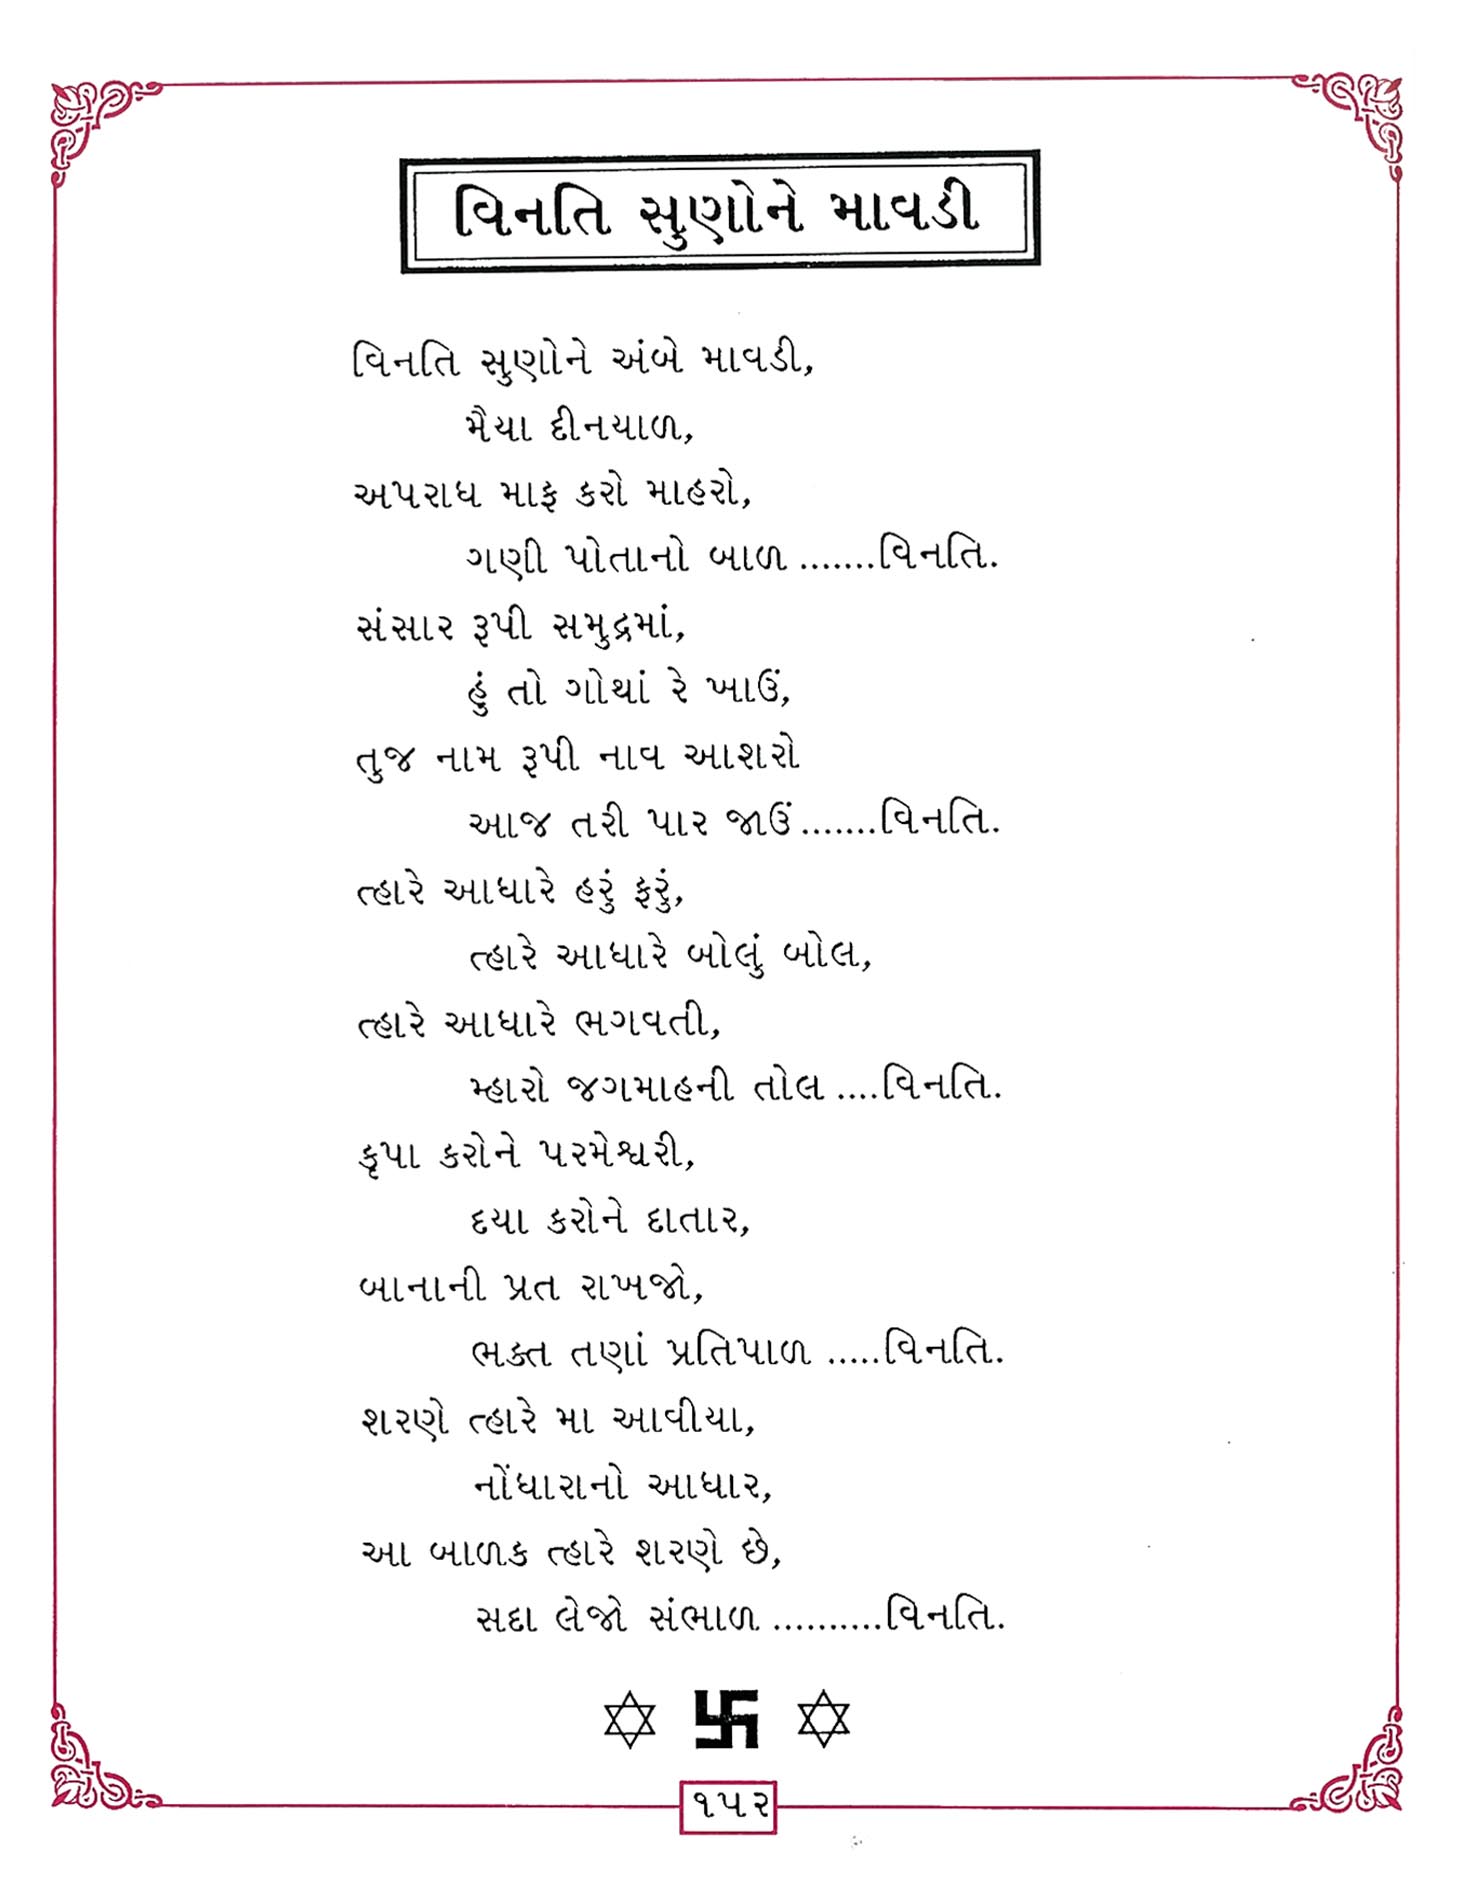 વિનતિ સુણોને માવડી
વિનતિ સુણોને અંબે માવડી,
મૈયા દીનયાળ,
અપરાધ માફ કરો માહરો,
ગણી પોતાનો બાળ .......વિનતિ.
સંસાર રૂપી સમુદ્રમાં,
હું તો ગોથાં રે ખાઉં,
તુજ નામ રૂપી નાવ આશરો
આજ તરી પાર જાઉં.......વિનતિ.
ત્હારે આધારે હરું ફરું,
ત્હારે આધારે બોલું બોલ,
ત્હારે આધારે ભગવતી,
મ્હારો જગમાહની તોલ ....વિનતિ.
કૃપા કરોને પરમેશ્વરી,
દયા કરોને દાતાર,
બાનાની પ્રત રાખજો,
ભક્ત તણાં પ્રતિપાળ .....વિનતિ.
શરણે ત્હારે મા આવીયા,
નોંધારાનો આધાર,
આ બાળક ત્હારે શરણે છે,
સદા લેજો સંભાળ ..........વિનતિ.
૧૫૨